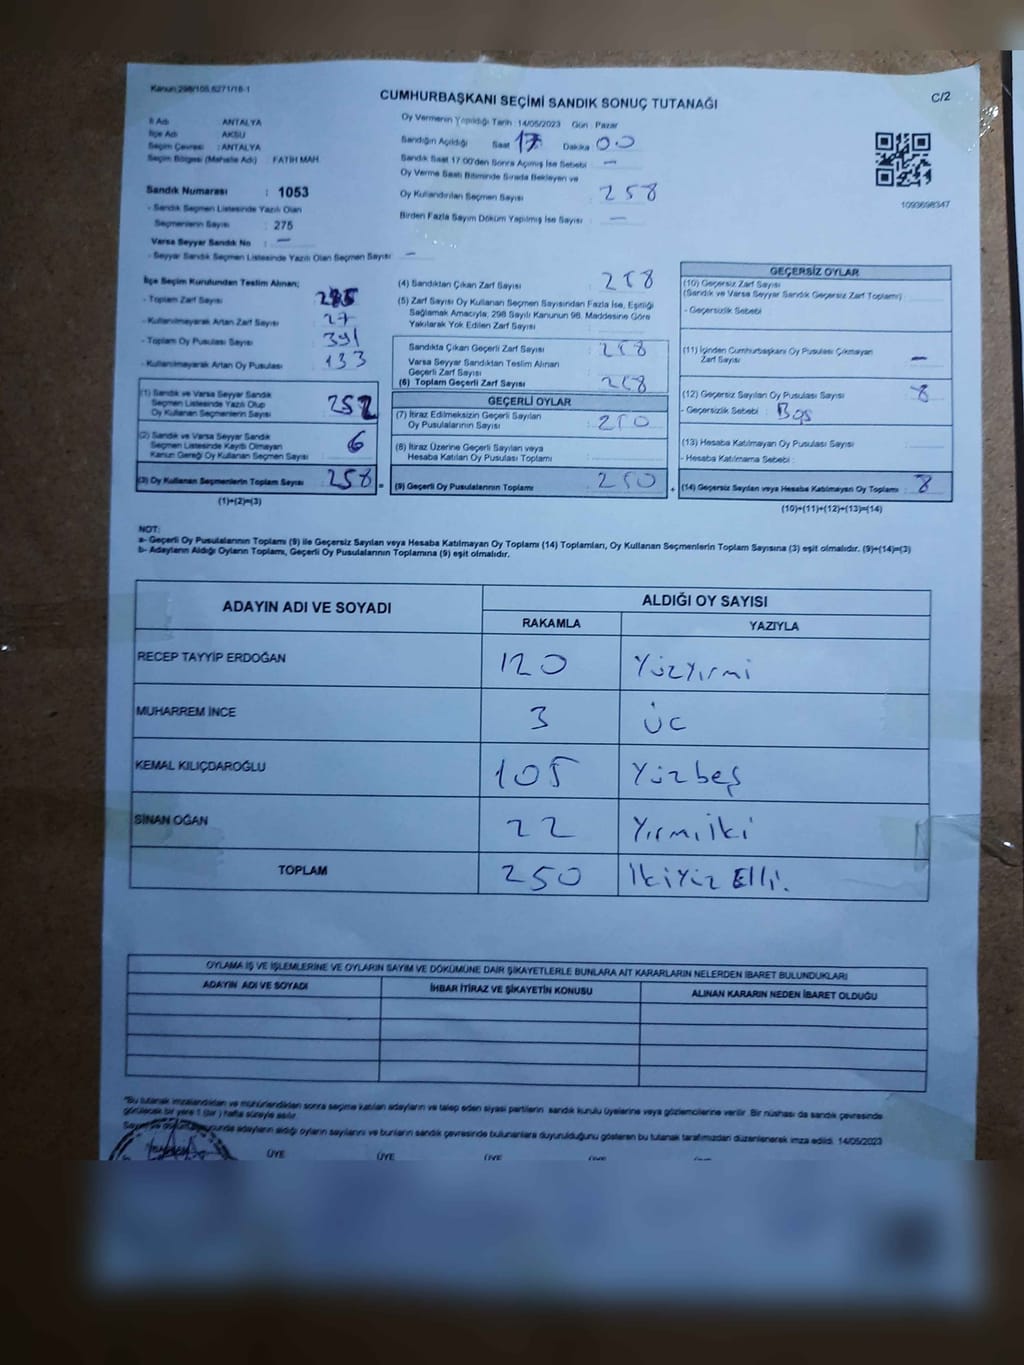 Kanun:298/105,6271/18-1
CUMHURBAŞKANI SEÇİMİ SANDIK SONUÇ TUTANAĞI
C/2
İl Adı ANTALYA
İlçe Adı AKSU
Seçim Çevresi : ANTALYA
Seçim Bölgesi (Mahalle Adı) FATİH MAH.
Sandık Numarası : 1053
- Sandık Seçmen Listesinde Yazılı Olan
Seçmenlerin Sayısı : 275
Varsa Seyyar Sandık No : -
- Seyyar Sandık Seçmen Listesinde Yazılı Olan Seçmen Sayısı : -
Oy Vermenin Yapıldığı Tarih : 14/05/2023 Gün : Pazar
Sandığın Açıldığı Saat 17 Dakika 00
Sandık Saat 17:00'den Sonra Açılmış İse Sebebi : -
Oy Verme Saati Bitiminde Sırada Bekleyen ve
Oy Kullandırılan Seçmen Sayısı : 258
Birden Fazla Sayım Döküm Yapılmış İse Sayısı : -
1093698347
İlçe Seçim Kurulundan Teslim Alınan;
- Toplam Zarf Sayısı :
- Kullanılmayarak Artan Zarf Sayısı : 27
- Toplam Oy Pusulası Sayısı : 391
- Kullanılmayarak Artan Oy Pusulası : 133
(1) Sandık ve Varsa Seyyar Sandık
Seçmen Listesinde Yazılı Olup
Oy Kullanan Seçmenlerin Sayısı : 252
(2) Sandık ve Varsa Seyyar Sandık
Seçmen Listesinde Kayıtlı Olmayan
Kanun Gereği Oy Kullanan Seçmen Sayısı : 6
(3) Oy Kullanan Seçmenlerin Toplam Sayısı : 258 =
(1)+(2)=(3)
(4) Sandıktan Çıkan Zarf Sayısı : 258
(5) Zarf Sayısı Oy Kullanan Seçmen Sayısından Fazla İse, Eşitliği
Sağlamak Amacıyla; 298 Sayılı Kanunun 98. Maddesine Göre
Yakılarak Yok Edilen Zarf Sayısı :
Sandıkta Çıkan Geçerli Zarf Sayısı : 258
Varsa Seyyar Sandıktan Teslim Alınan
Geçerli Zarf Sayısı :
(6) Toplam Geçerli Zarf Sayısı : 258
GEÇERLİ OYLAR
(7) İtiraz Edilmeksizin Geçerli Sayılan
Oy Pusulalarının Sayısı : 250
(8) İtiraz Üzerine Geçerli Sayılan veya
Hesaba Katılan Oy Pusulası Toplamı :
(9) Geçerli Oy Pusulalarının Toplamı : 250 +
GEÇERSİZ OYLAR
(10) Geçersiz Zarf Sayısı
(Sandık ve Varsa Seyyar Sandık Geçersiz Zarf Toplamı) :
- Geçersizlik Sebebi :
(11) İçinden Cumhurbaşkanı Oy Pusulası Çıkmayan
Zarf Sayısı : -
(12) Geçersiz Sayılan Oy Pusulası Sayısı : 8
- Geçersizlik Sebebi : Boş
(13) Hesaba Katılmayan Oy Pusulası Sayısı :
- Hesaba Katılmama Sebebi :
(14) Geçersiz Sayılan veya Hesaba Katılmayan Oy Toplamı : 8
(10)+(11)+(12)+(13)=(14)
NOT:
a- Geçerli Oy Pusulalarının Toplamı (9) ile Geçersiz Sayılan veya Hesaba Katılmayan Oy Toplamı (14) Toplamları, Oy Kullanan Seçmenlerin Toplam Sayısına (3) eşit olmalıdır. (9)+(14)=(3)
b- Adayların Aldığı Oyların Toplamı, Geçerli Oy Pusulalarının Toplamına (9) eşit olmalıdır.
ADAYIN ADI VE SOYADI ALDIĞI OY SAYISI
RAKAMLA YAZIYLA
RECEP TAYYİP ERDOĞAN 120 Yüzyirmi
MUHARREM İNCE 3 ÜC
KEMAL KILIÇDAROĞLU 105 Yüzbeş
SİNAN OĞAN 22 Yirmiiki
TOPLAM 250 İkiyüz Elli.
OYLAMA İŞ VE İŞLEMLERİNE VE OYLARIN SAYIM VE DÖKÜMÜNE DAİR ŞİKAYETLERLE BUNLARA AİT KARARLARIN NELERDEN İBARET BULUNDUKLARI
ADAYIN ADI VE SOYADI İHBAR İTİRAZ VE ŞİKAYETİN KONUSU ALINAN KARARIN NEDEN İBARET OLDUĞU
"Bu tutanak imzalandıktan ve mühürlendikten sonra seçime katılan adayların ve talep eden siyasi partilerin sandık kurulu üyelerine veya gözlemcilerine verilir. Bir nüshası da sandık çevresinde
görülecek bir yere 1 (bir) hafta süreyle asılır.
adayların aldığı oyların sayılarını ve bunların sandık çevresinde bulunanlara duyurulduğunu gösteren bu tutanak tarafımızdan düzenlenerek imza edildi. 14/05/2023
ÜYE ÜYE ÜYE